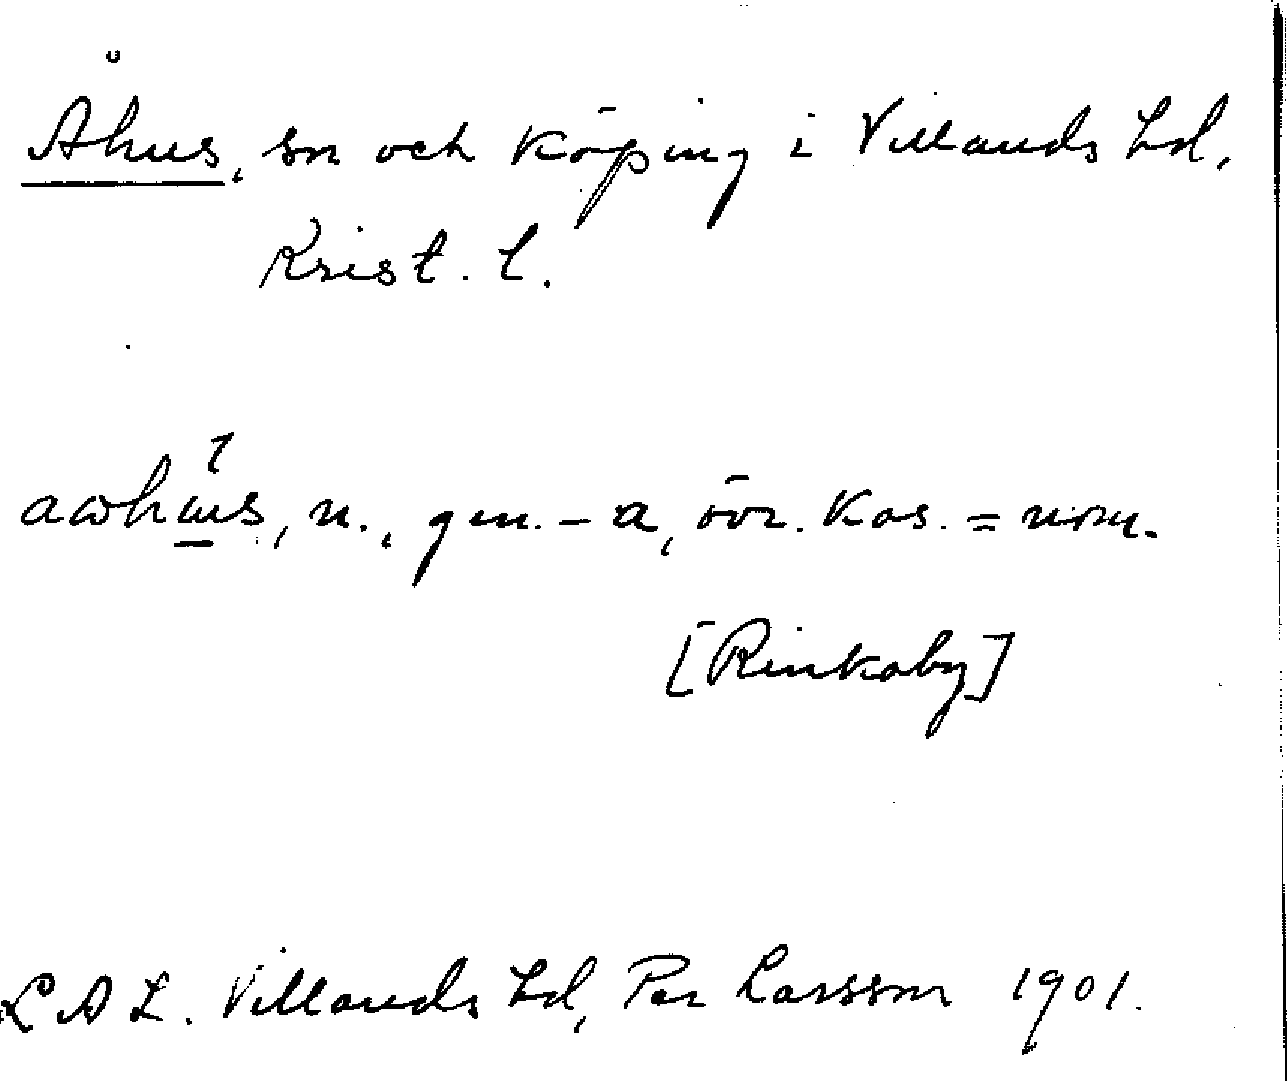 Åhus, sn och köping i Villands hd,
Krist. l.
n., gen. -a, övr. kas. = nom.
[Rinkaby]
L A L. Villands hd, Per Larsson 1901.